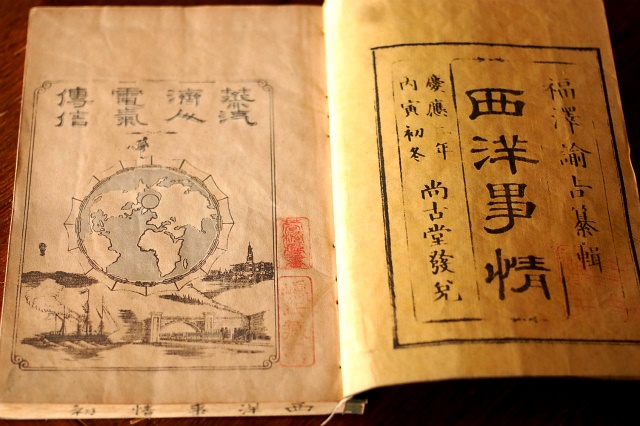 福澤諭吉纂輯
西洋事情
慶應二年
丙寅初冬
尚古堂發兌
蒸汽
濟人
電氣
傳信
西洋事情 初